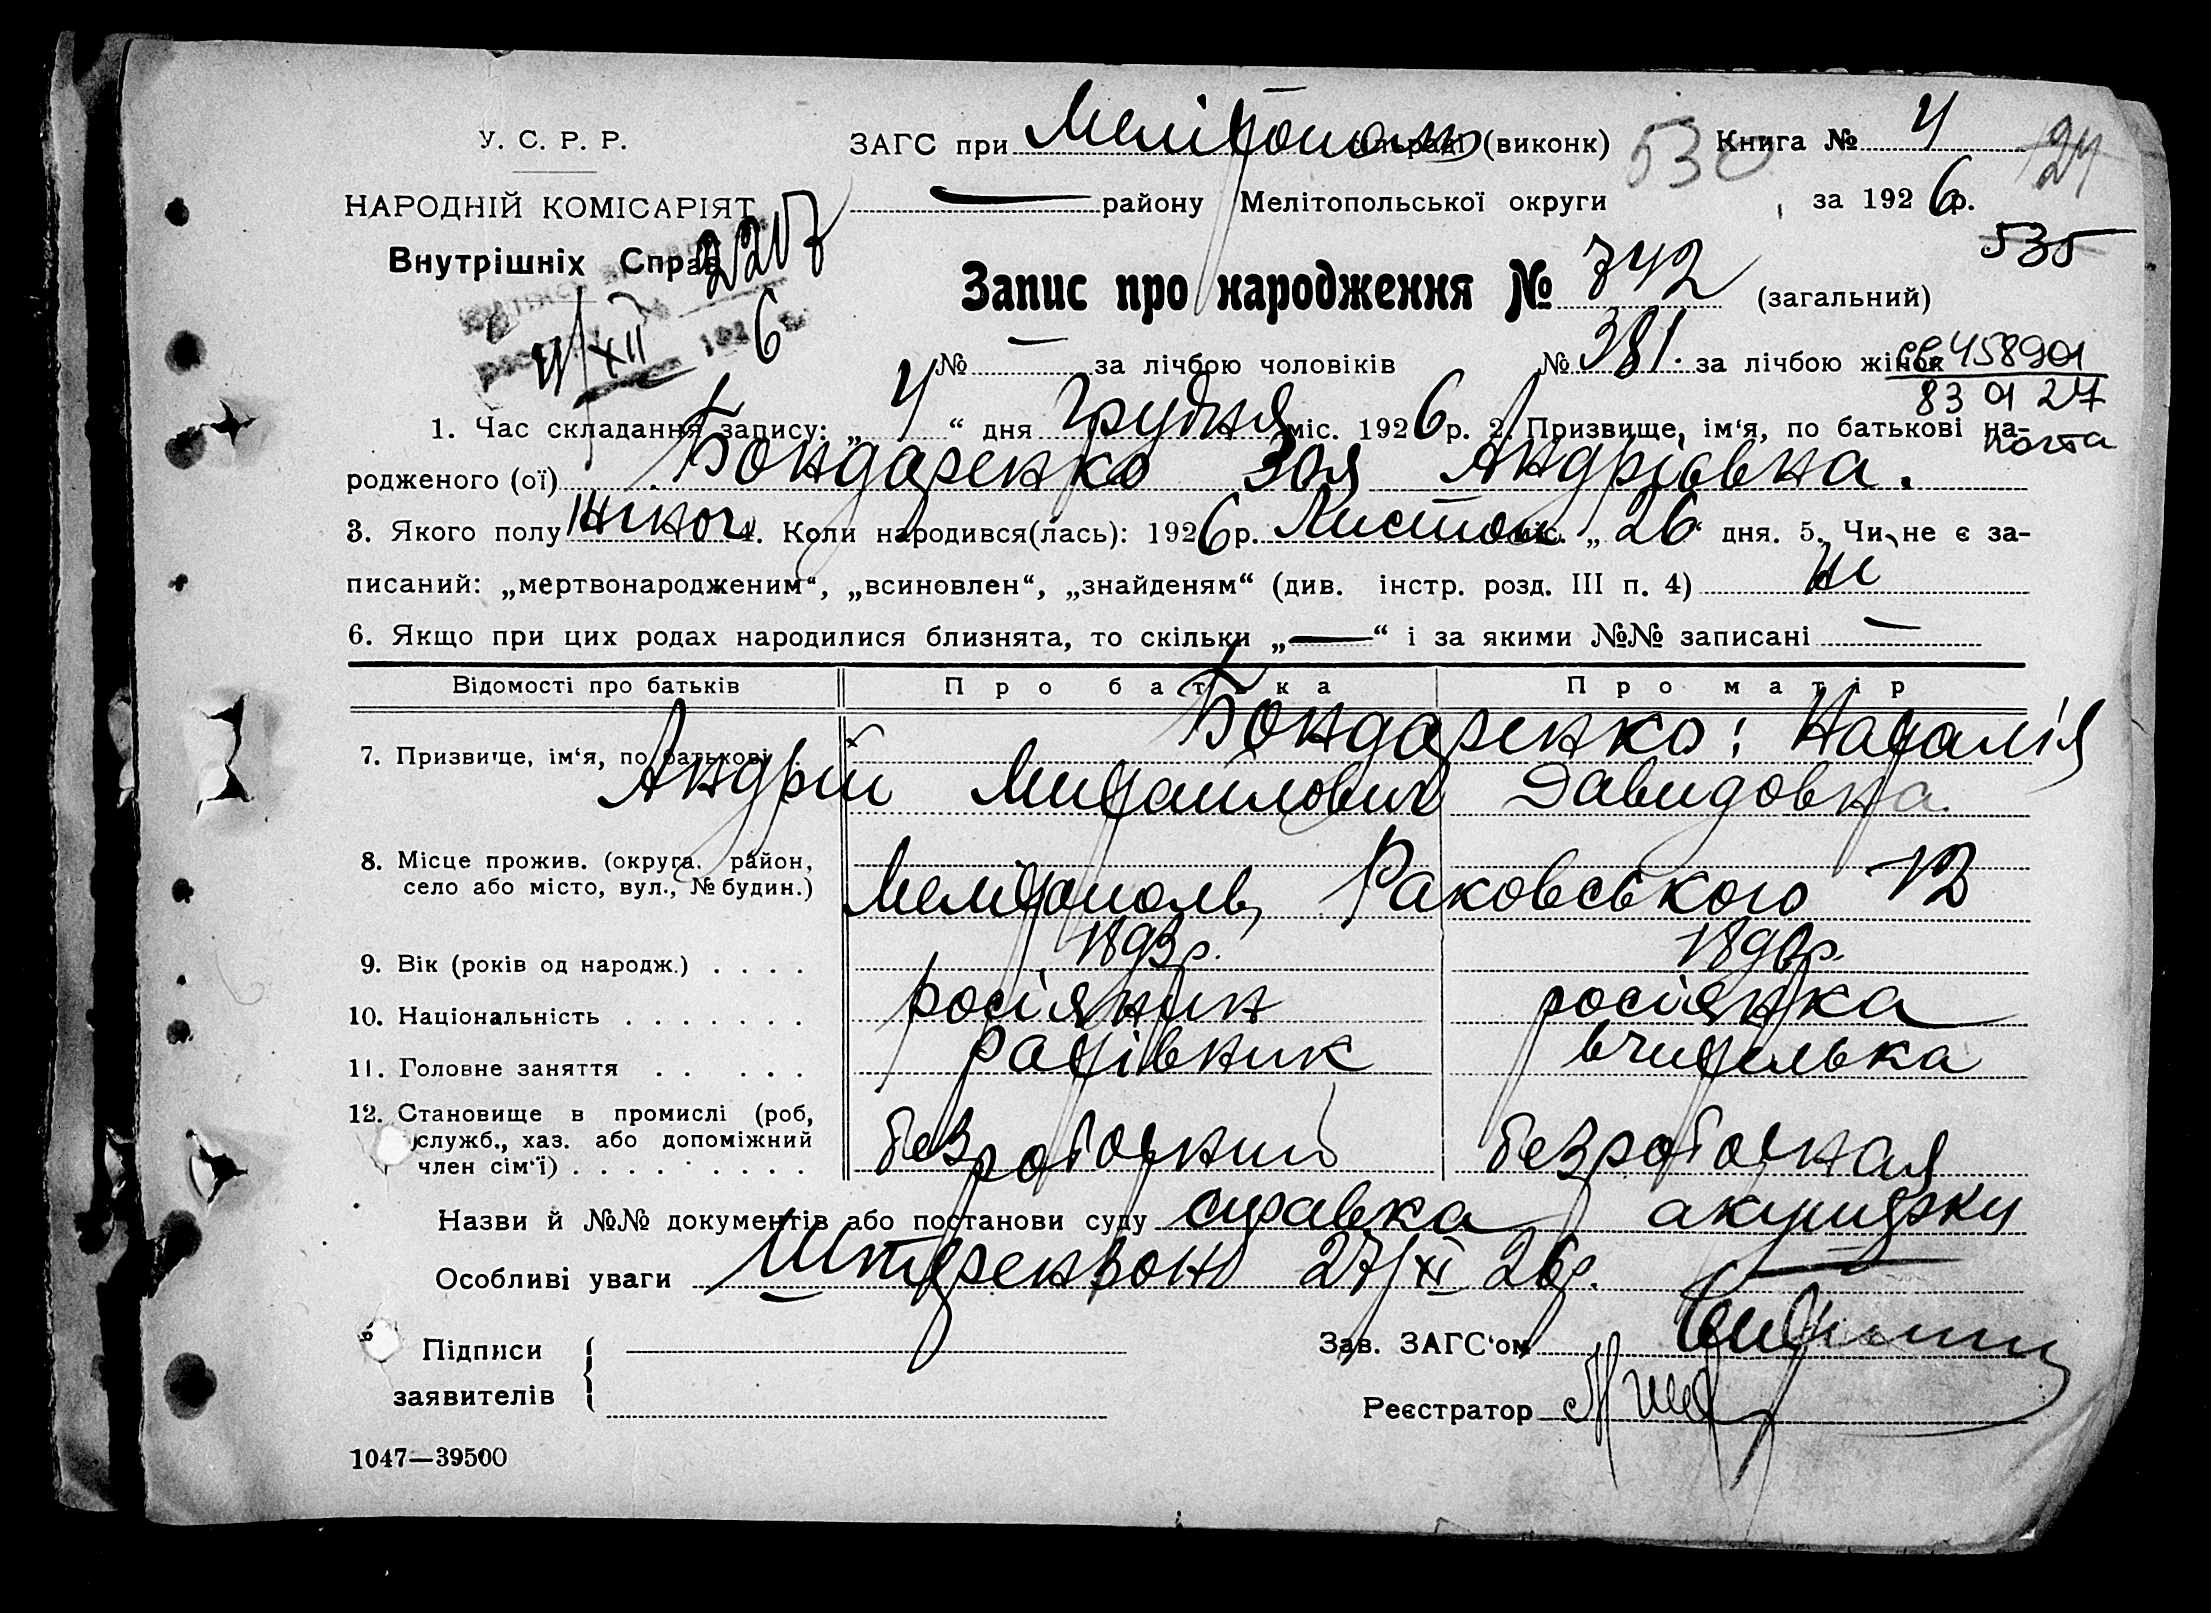 У. С. Р. Р.
ЗАГС при Мелітополь сільраді (виконк) 530 Книга № 4 124
НАРОДНІЙ КОМІСАРІЯТ
— району Мелітопольської округи, за 1926 р.
Внутрішніх Справ 2207
535
4/XII 1926
Запис про народження № 742 (загальний)
№ — за лічбою чоловіків № 381. за лічбою жінок
458901
83 01 27
1. Час складання запису: „4“ дня Грудня міс. 1926 р. 2. Призвище, ім‘я, по батькові на-
родженого (ої) Бондаренко Зоя Андріівна.
3. Якого полу жіноч 4. Коли народився(лась): 1926 р. Листоп міс. „26 дня. 5. Чи не є за-
писаний: „мертвонародженим“, „всиновлен“, „знайденям“ (див. інстр. розд. III п. 4) ні
6. Якщо при цих родах народилися близнята, то скільки „—“ і за якими №№ записані —
Відомості про батьків Про батька Про матір
7. Призвище, ім‘я, по батькові Бондаренко: Наталія
Андрій Михайлович Давидовна.
8. Місце прожив. (округа. район,
село або місто, вул., № будин.) Мелітополь, Раковського 12
9. Вік (років од народж.) . . . . 1893 р. 189 р.
10. Національність . . . . . . . росіянин росіянка
11. Головне заняття . . . . . рахівник вчителька
12. Становище в промислі (роб,
служб., хаз. або допоміжний
член сім‘ї) . . . . . . . . . безработний безработная
Назви й №№ документів або постанови суду справка акушерки
Особливі уваги Штерензон 27/XI 26 р.
Підписи
заявителів
Зав. ЗАГС‘ом
Реєстратор
1047—39500